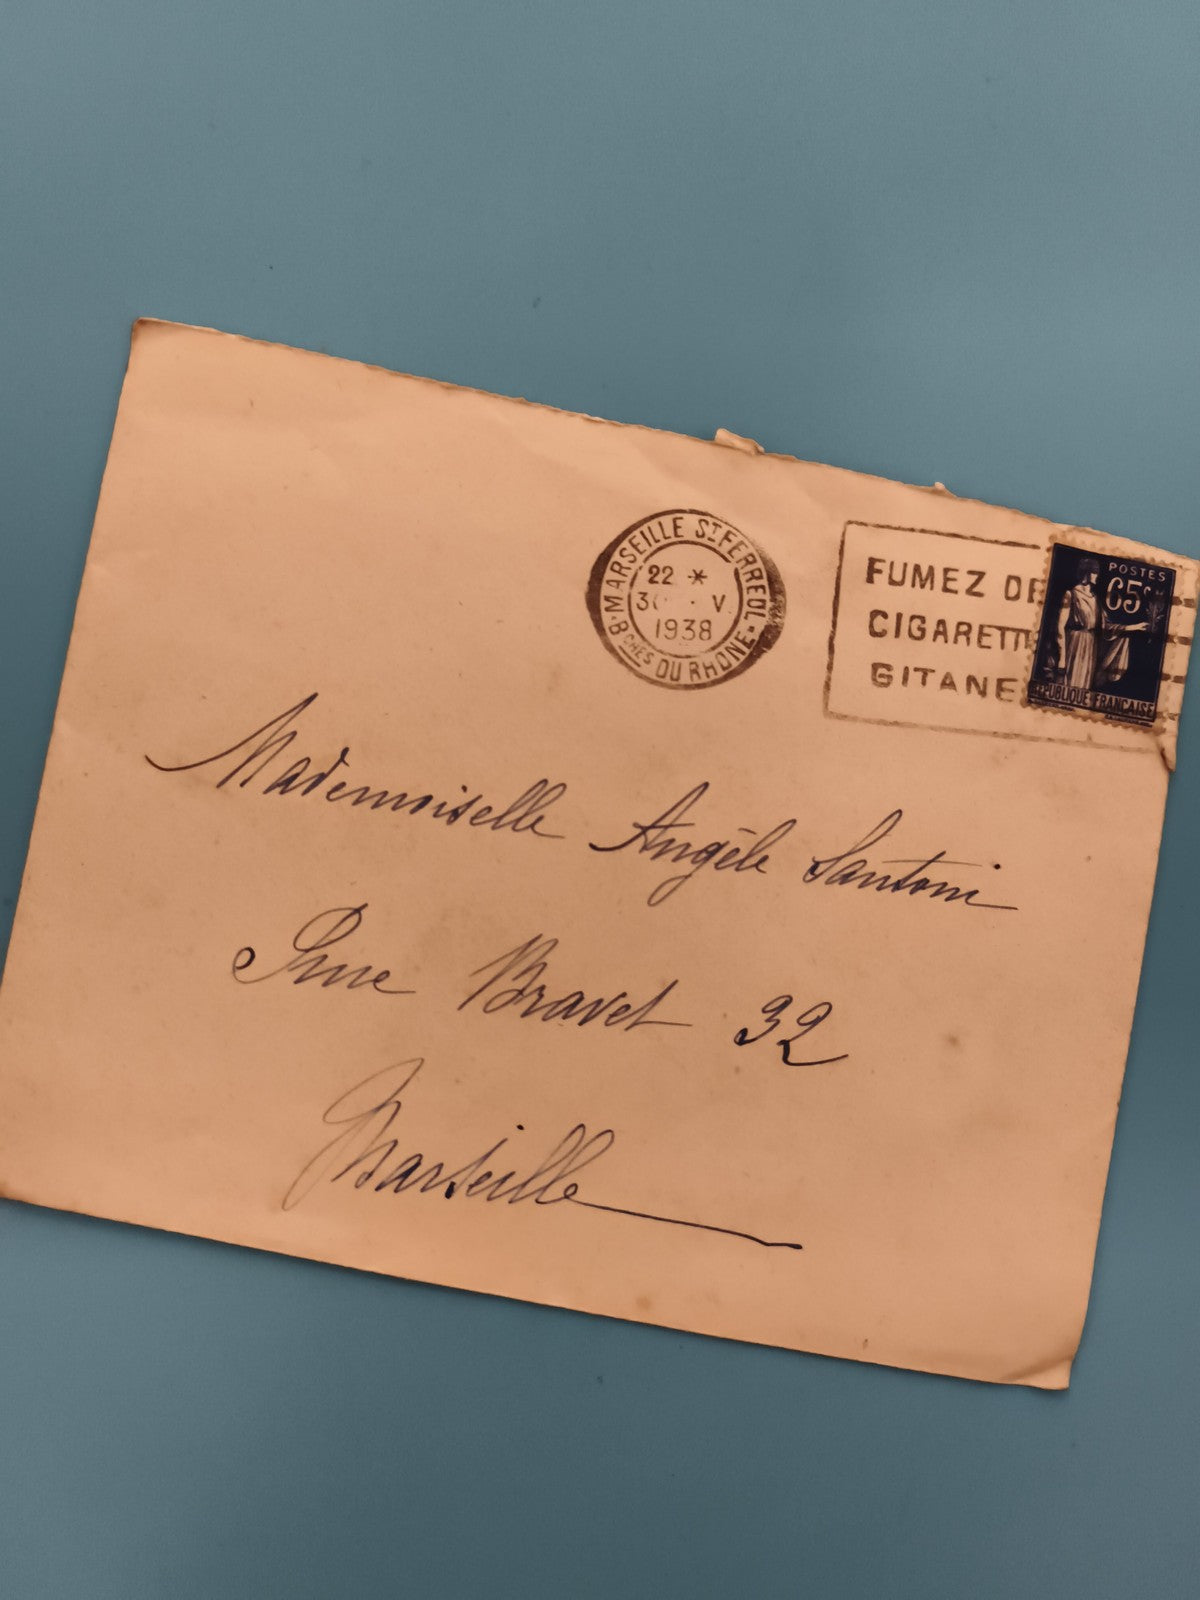 MARSEILLE ST FERREOL
22 *
V
1938
BCHES DU RHONE
FUMEZ
CIGARETT
GITANE
POSTES
65c
REPUBLIQUE FRANCAISE
Mademoiselle Angèle Santoni
Rue Bravet 32
Marseille